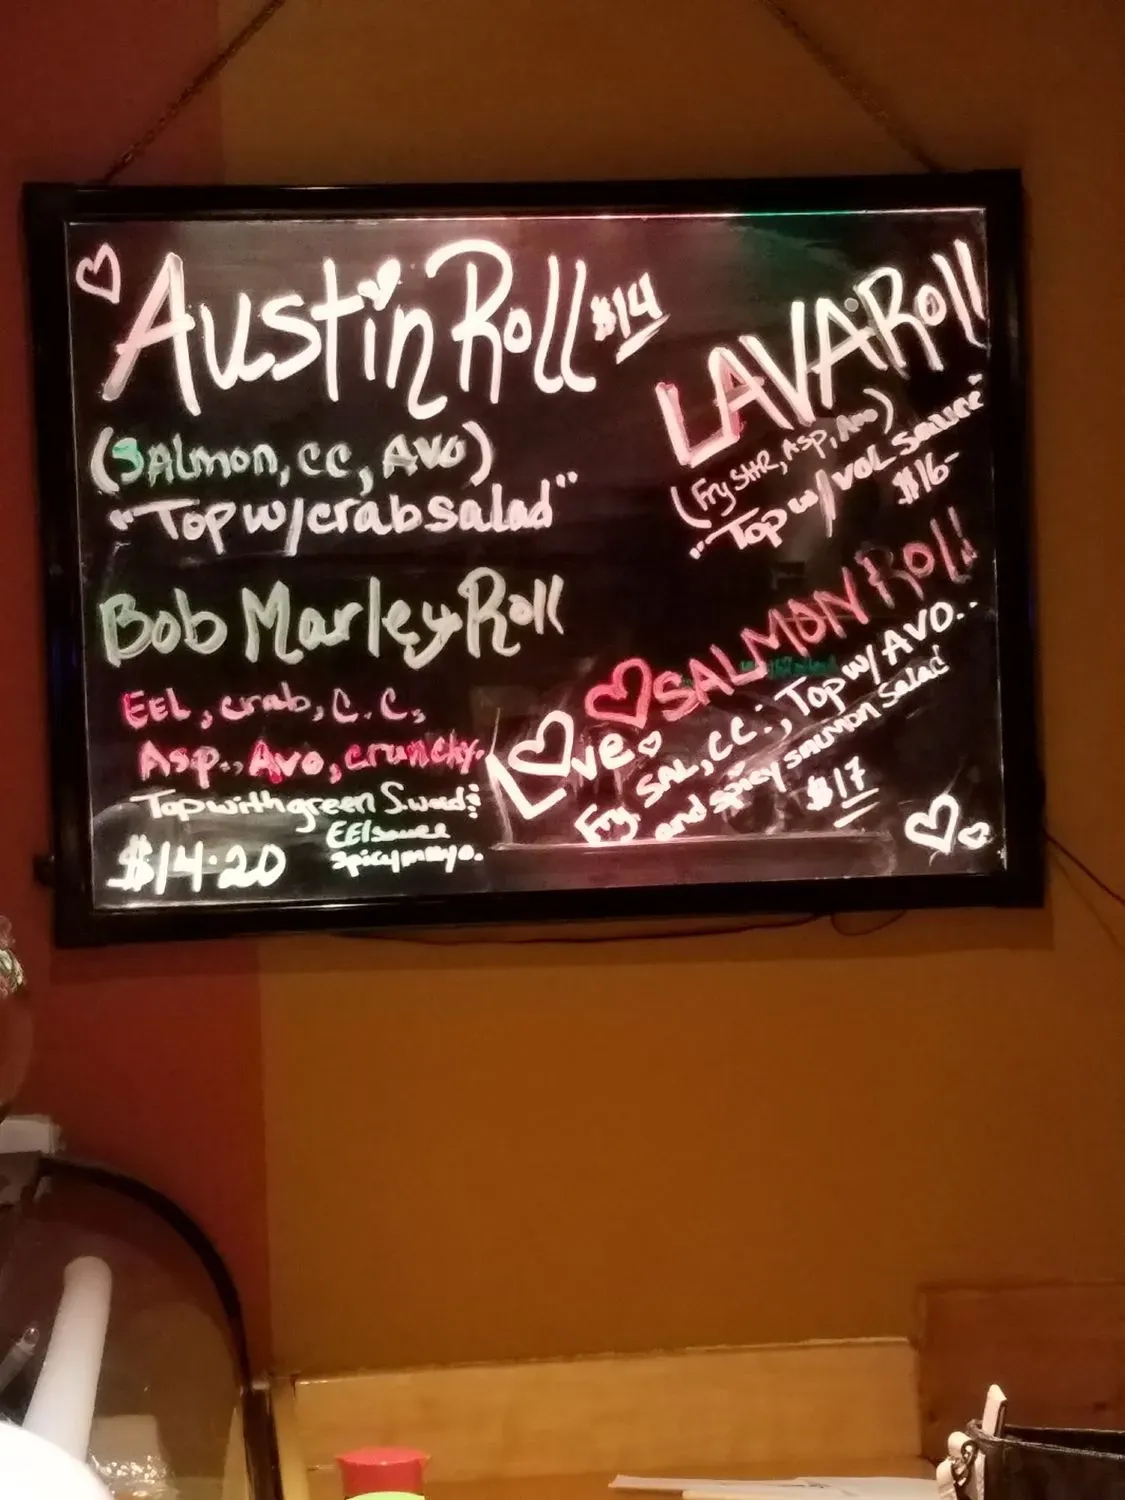 Austin Roll $14
(Salmon, CC, AVO)
"Top w/crab salad"
Bob Marley Roll
EEL, crab, C.C,
Asp., Avo, crunchy.
Top with green S.weed:
EEl sauce
spicy mayo.
$14.20
LAVA Roll
(Fry SHR, Asp, Avo)
"Top w/ VOL Sauce"
$16-
SALMON Roll
Love.
Fry. SAL, CC., Top w/ AVO..
and spicy salmon salad
$17